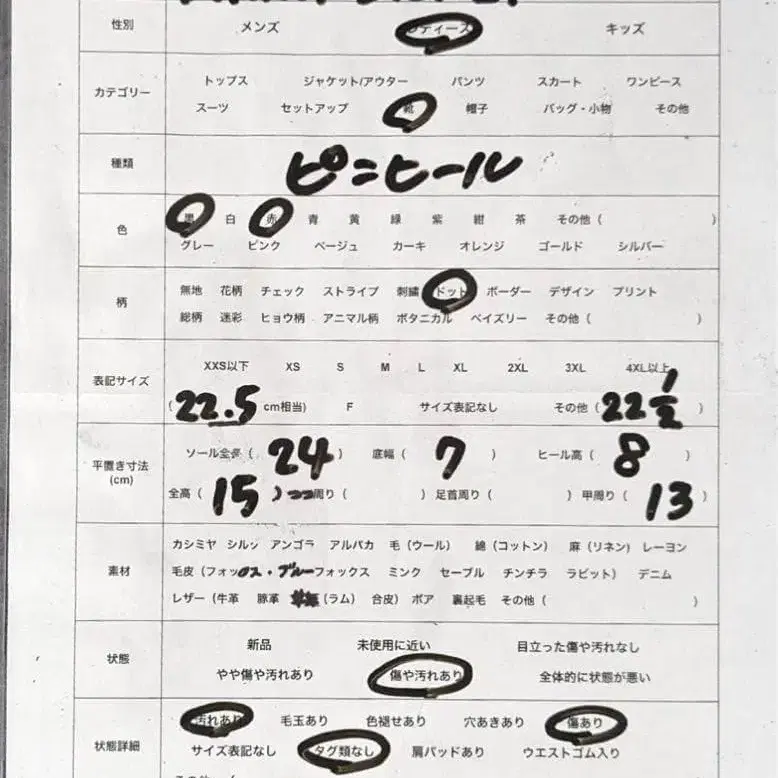 性別 メンズ レディース キッズ
カテゴリー トップス ジャケット/アウター パンツ スカート ワンピース
スーツ セットアップ 靴 帽子 バッグ・小物 その他
種類 ピンヒール
色 黒 白 赤 青 黄 緑 紫 紺 茶 その他 ( )
グレー ピンク ベージュ カーキ オレンジ ゴールド シルバー
柄 無地 花柄 チェック ストライプ 刺繍 ドット ボーダー デザイン プリント
総柄 迷彩 ヒョウ柄 アニマル柄 ボタニカル ペイズリー その他 ( )
表記サイズ XXS以下 XS S M L XL 2XL 3XL 4XL以上
( 22.5 cm相当) F サイズ表記なし その他 ( 22 1/2 )
平置き寸法 (cm) ソール全長 ( 24 ) 底幅 ( 7 ) ヒール高 ( 8 )
全高 ( 15 ) 周り ( ) 足首周り ( ) 甲周り ( 13 )
素材 カシミヤ シルク アンゴラ アルパカ 毛 (ウール) 綿 (コットン) 麻 (リネン) レーヨン
毛皮 (フォックス・ブルーフォックス ミンク セーブル チンチラ ラビット) デニム
レザー (牛革 豚革 (ラム) 合皮) ボア 裏起毛 その他 ( )
状態 新品 未使用に近い 目立った傷や汚れなし
やや傷や汚れあり 傷や汚れあり 全体的に状態が悪い
状態詳細 汚れあり 毛玉あり 色褪せあり 穴あきあり 傷あり
サイズ表記なし タグ類なし 肩パッドあり ウエストゴム入り
その他 (